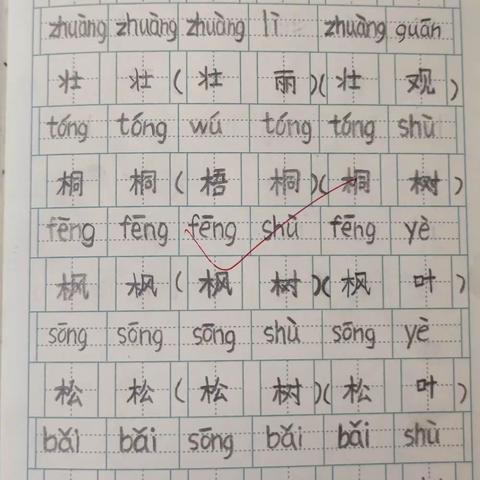 zhuàng zhuàng zhuàng lì zhuàng guān
壮 壮 ( 壮 丽 )( 壮 观 )
tóng tóng wú tóng tóng shù
桐 桐 ( 梧 桐 )( 桐 树 )
fēng fēng fēng shù fēng yè
枫 枫 ( 枫 树 )( 枫 叶 )
sōng sōng sōng shù sōng yè
松 松 ( 松 树 )( 松 叶 )
bǎi bǎi sōng bǎi bǎi shù